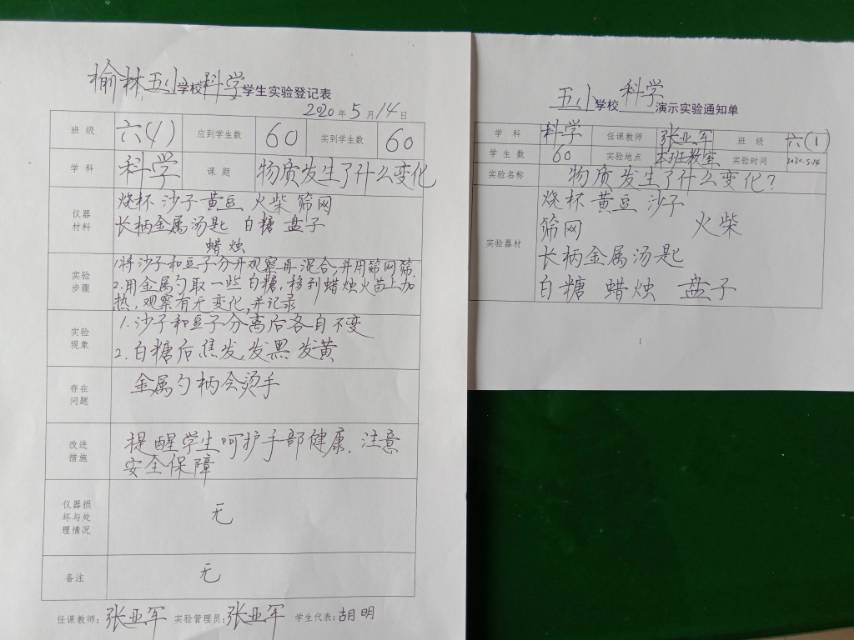 榆林五小学校科学学生实验登记表
2020年5月14日
班级 六(1) 应到学生数 60 实到学生数 60
学科 科学 课题 物质发生了什么变化
仪器材料
烧杯 沙子 黄豆 火柴 筛网
长柄金属汤匙 白糖 盘子
蜡烛
实验步骤
1.将沙子和豆子分开观察再混合,并用筛网筛.
2.用金属勺取一些白糖,移到蜡烛火苗上加
热,观察有无变化,并记录
实验现象
1.沙子和豆子分离后各自不变
2.白糖后焦发,发黑 发黄
存在问题
金属勺柄会烫手
改进措施
提醒学生呵护手部健康.注意
安全保障
仪器损坏与处理情况
无
备注 无
任课教师:张亚军 实验管理员:张亚军 学生代表:胡明
五小学校科学演示实验通知单
学科 科学 任课教师 张亚军 班级 六(1)
学生数 60 实验地点 本班教室 实验时间 2020.5.14
实验名称 物质发生了什么变化?
实验器材
烧杯 黄豆 沙子
筛网 火柴
长柄金属汤匙
白糖 蜡烛 盘子
1